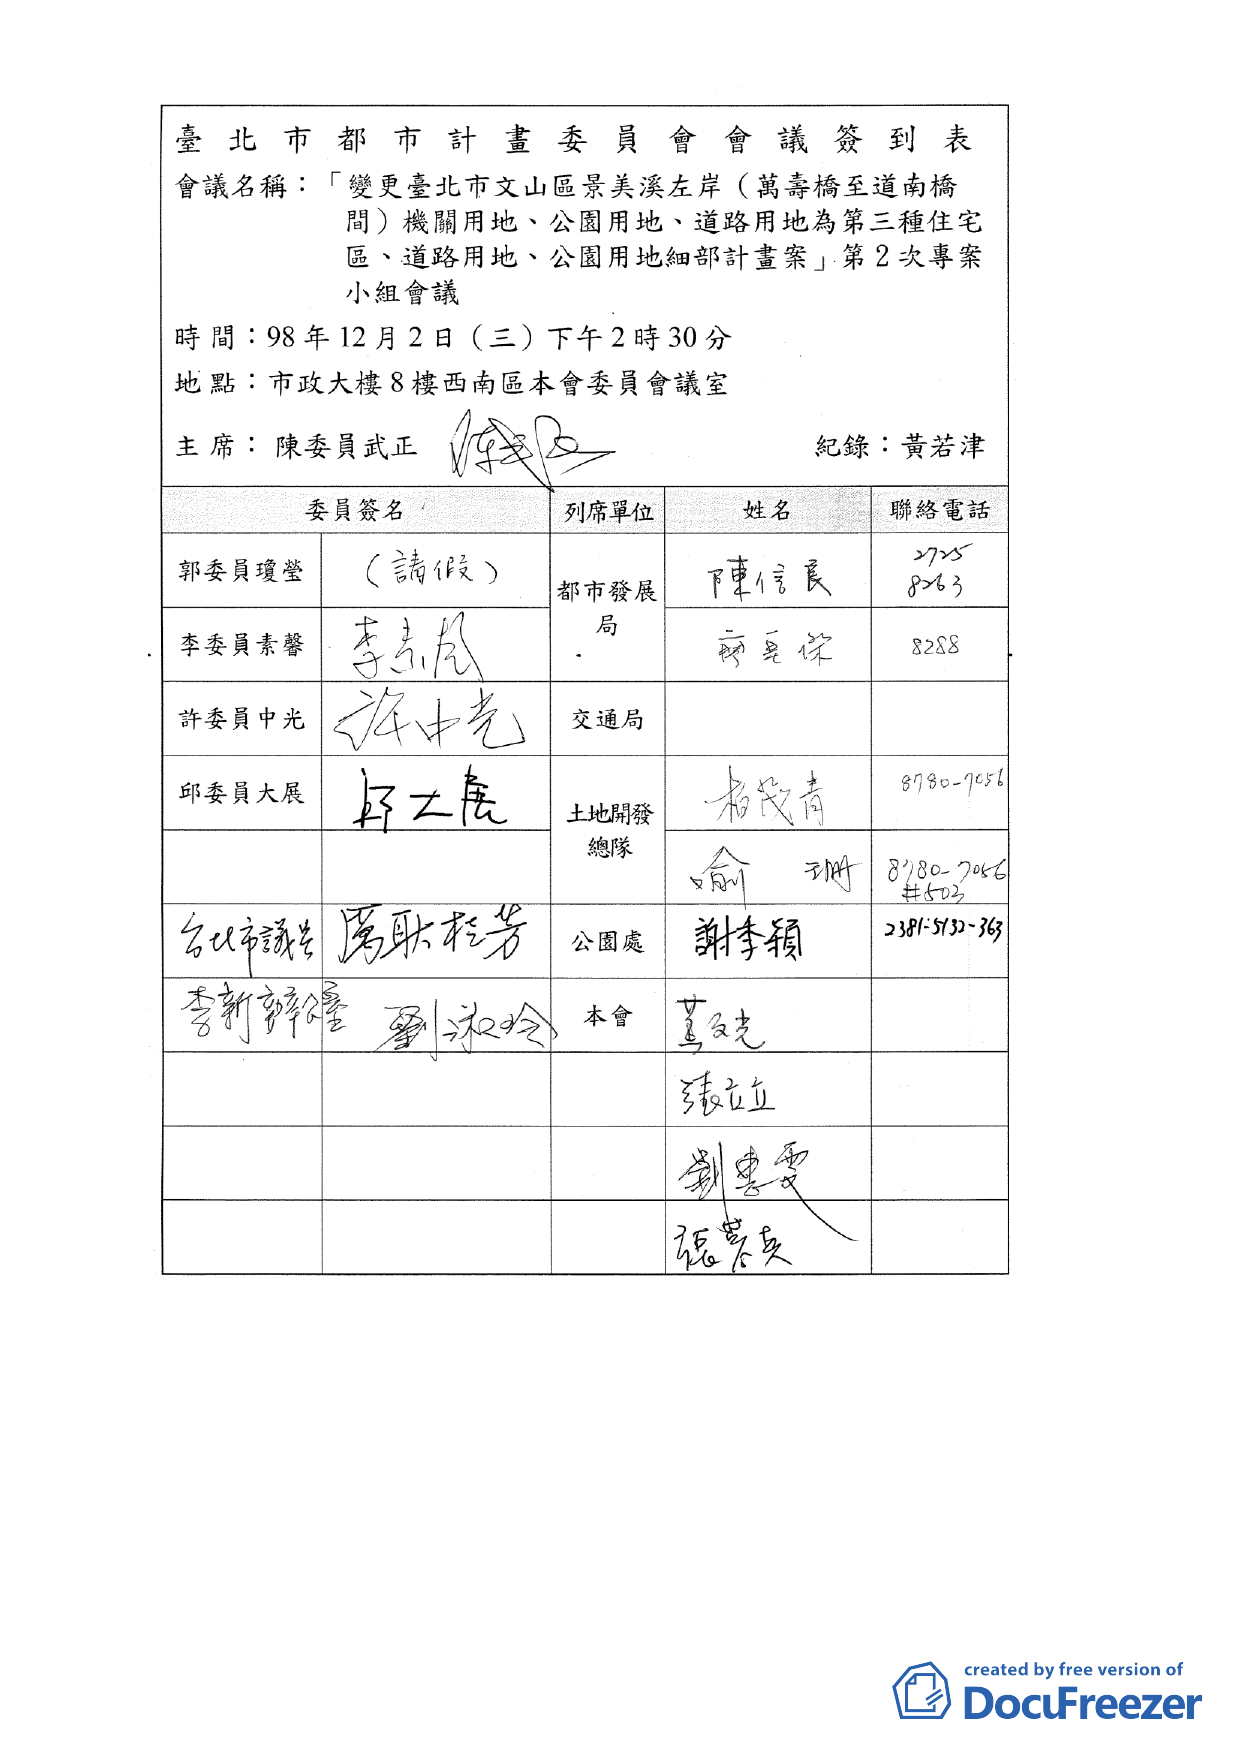 臺北市都市計畫委員會會議簽到表
會議名稱：「變更臺北市文山區景美溪左岸（萬壽橋至道南橋
間）機關用地、公園用地、道路用地為第三種住宅
區、道路用地、公園用地細部計畫案」第2次專案
小組會議
時間：98年12月2日（三）下午2時30分
地點：市政大樓8樓西南區本會委員會議室
主席：陳委員武正 紀錄：黃若津
委員簽名 列席單位 姓名 聯絡電話
郭委員瓊瑩 （請假） 都市發展局 陳信良 2725
8263
李委員素馨 李素馨 8288
許委員中光 許中光 交通局
邱委員大展 邱大展 土地開發總隊 8780-7056
喻 珊 8780-7056
#503
台北市議員 厲耿桂芳 公園處 謝季穎 2381-5132-363
李新辦公室 劉淑玲 本會
張立立
劉惠雯